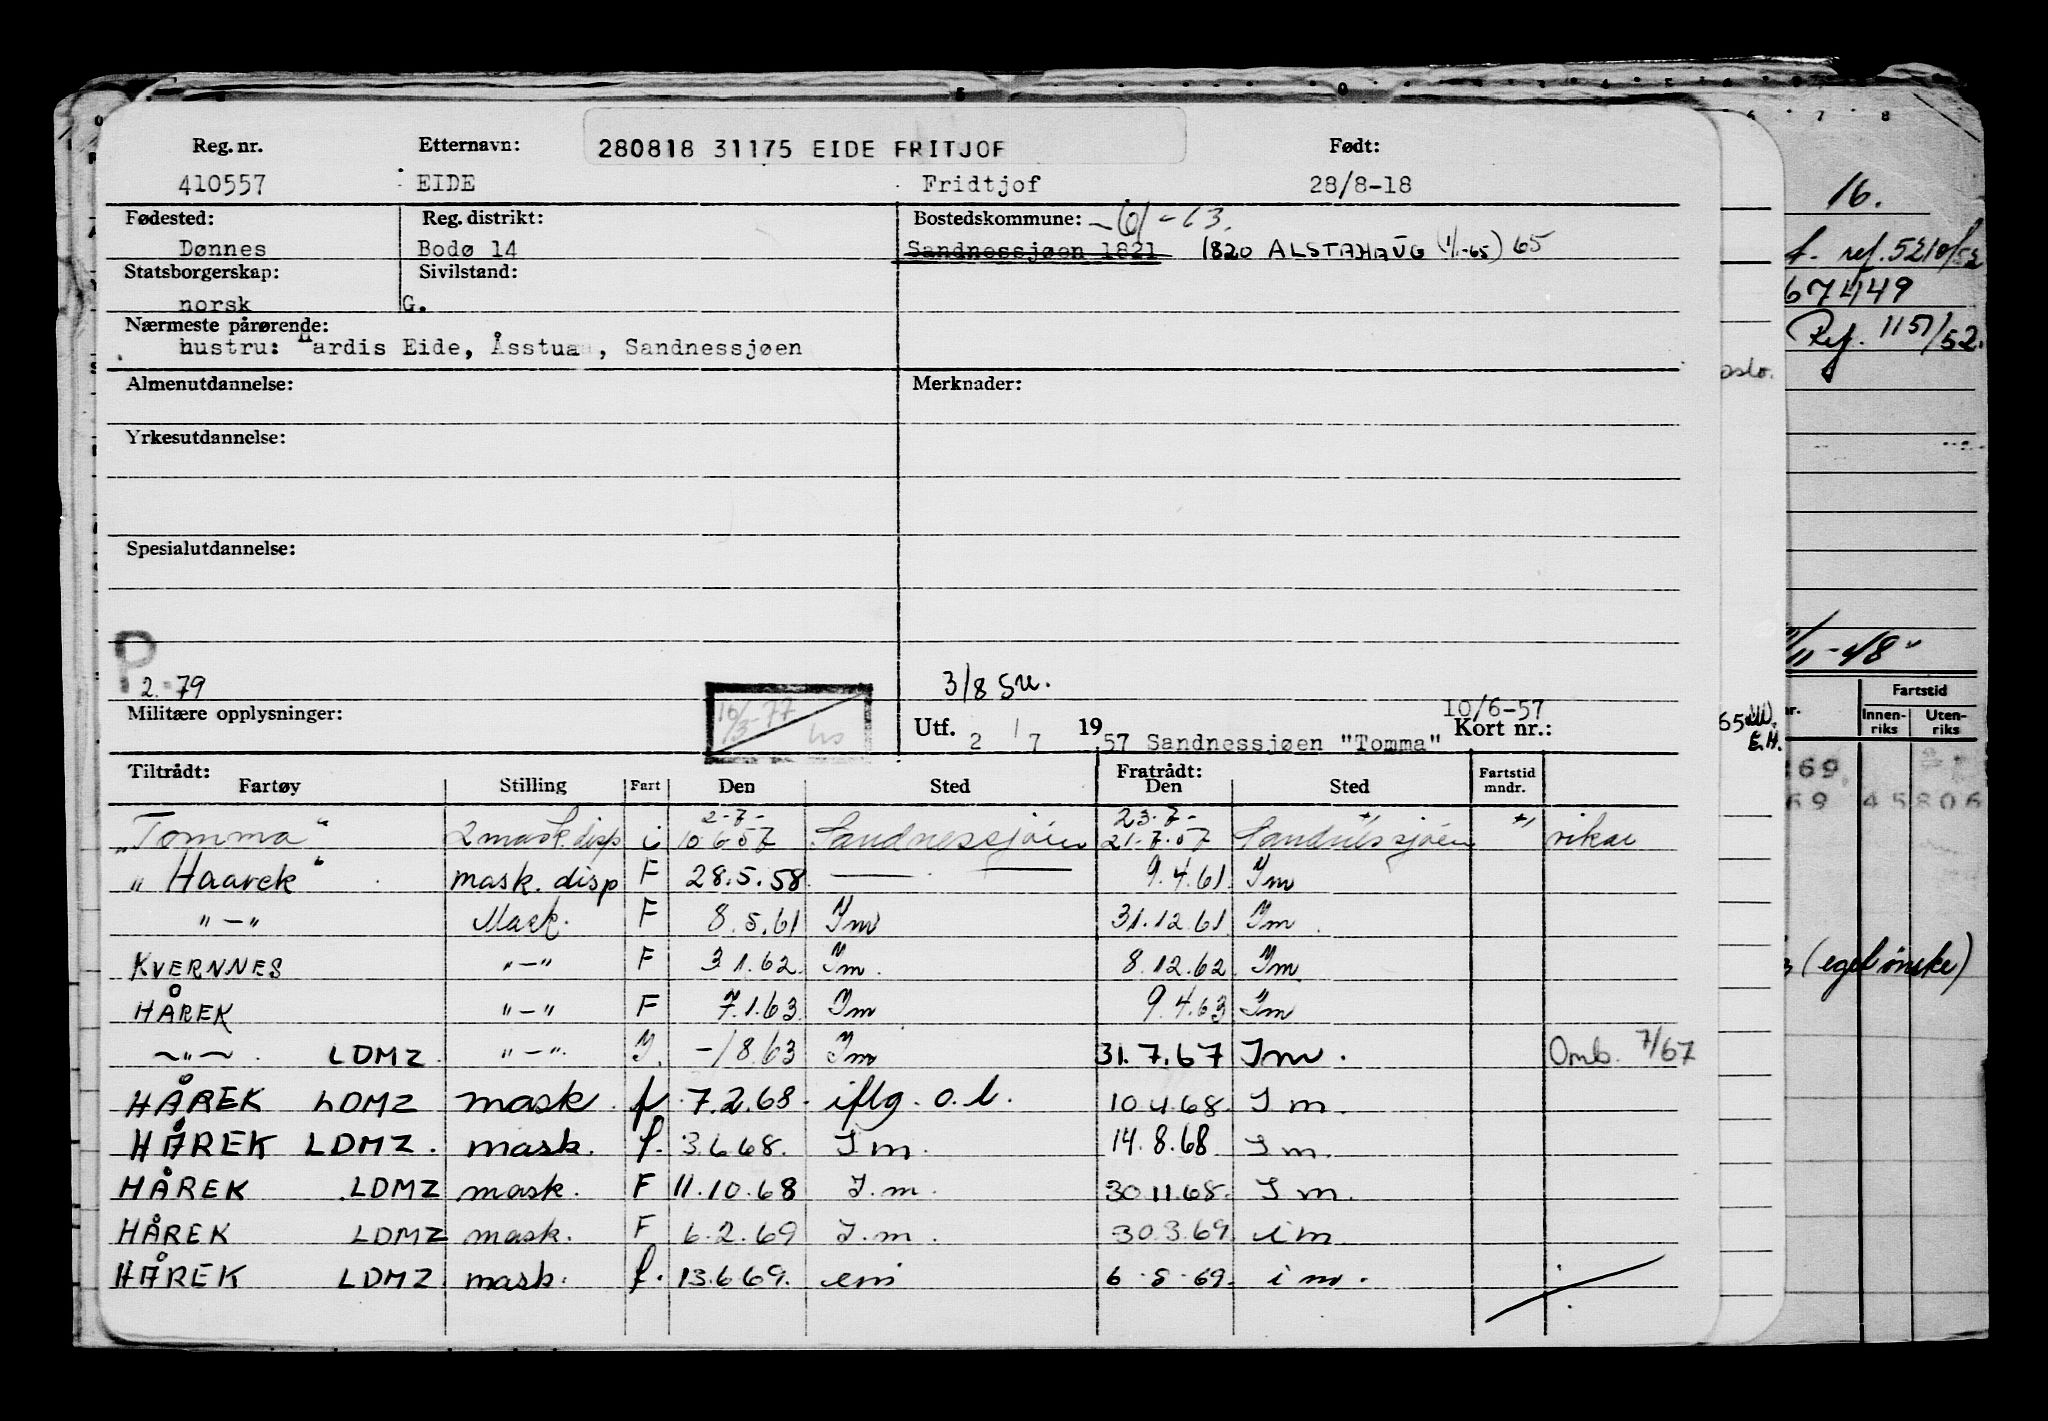 Reg. nr. Etternavn: 280818 31175 EIDE FRITJOF Født:
410557 EIDE Fridtjof 28/8-18
Fødested: Reg. distrikt: Bostedskommune:
Dønnes Bodø 14 Sandnessjøen 1821 1820 ALSTAHAUG (1/1-65) 65
Statsborgerskap: Sivilstand:
norsk G.
Nærmeste pårørende:
hustru: Hardis Eide, Åsstua, Sandnessjøen
Almenutdannelse: Merknader:
Yrkesutdannelse:
Spesialutdannelse:
P
2. 79 3/8 SU.
Militære opplysninger: 10/3-77 10/6-57
Utf. 2/7 1957 Sandnessjøen "Tomma" Kort nr.:
Tiltrådt: Fratrådt:
Fartøy Stilling Fart Den Sted Den Sted Fartstid mndr.
2-7- 23.7-
"Tomma" 2 mask. disp i 10.6.57 Sandnessjøen 21.7.57 Sandnessjøen vikar
"Haarek" mask. disp F 28.5.58 — — 9.4.61 Im
"-" Mask. F 8.5.61 Im 31.12.61 Im
KVERNNES "-" F 3.1.62 Im. 8.12.62 Im
HÅREK "-" F 7.1.63 Im 9.4.63 Im
-"- LDMZ "-" I. -/8.63 Im 31.7.67 Im. Omb. 7/67
HÅREK LDMZ mask. f 7.2.68. iflg. o.l. 10.4.68. I m.
HÅREK LDMZ. mask. f. 3.6.68. I m. 14.8.68 I m.
HÅREK LDMZ mask. F 11.10.68 I.m. 30.11.68. I m.
HÅREK LDMZ mask. F 6.2.69 I.m. 30.3.69. i m
HÅREK LDMZ. mask. f. 13.6.69. em 6.8.69. i m.
oslo.
65
E.H.
16.
ref. 5210/52
67449
Ref. 1151/52.
11-48
Fartstid
Innen-riks Uten-riks
269
69 45806
(eget ønske)